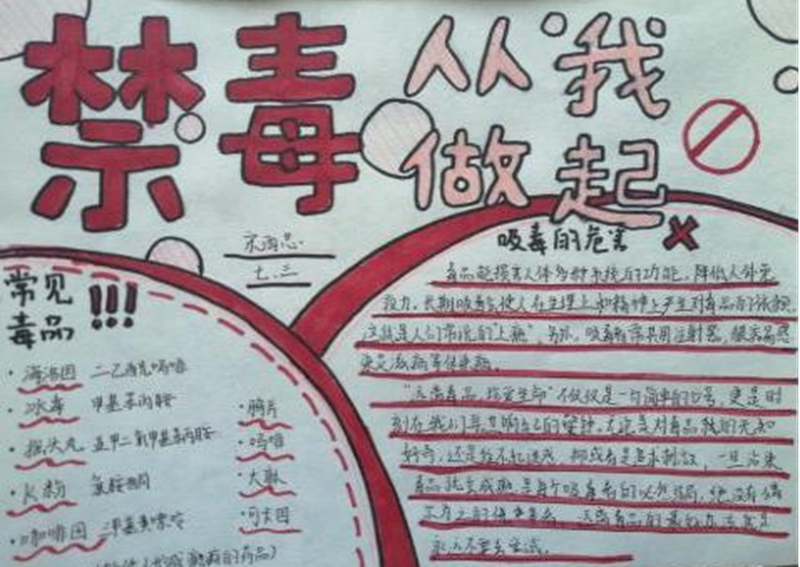 禁毒从我
做起
七.三
吸毒的危害
常见
毒品!!!
毒品能损害人体多种系统的功能,降低人体免
疫力。长期吸毒会使人在生理上和精神上产生对毒品的依赖
这就是人们常说的"上瘾"。另外,吸毒者常共用注射器,很容易感
染艾滋病等传染病。
"远离毒品,珍爱生命"不仅仅是一句简单的口号,更是时
刻在我们耳边响起的警钟。不论是对毒品
好奇,还是经不起诱惑,抑或者是追求刺激,一旦沾染
毒品就会成瘾
永远不要去尝试。
·海洛因 二乙酰吗啡
·冰毒 甲基苯丙胺
·摇头丸 亚甲二氧甲基苯丙胺
·K粉 氯胺酮
·咖啡因 三甲基黄嘌呤
·鸦片
·吗啡
·大麻
·可卡因